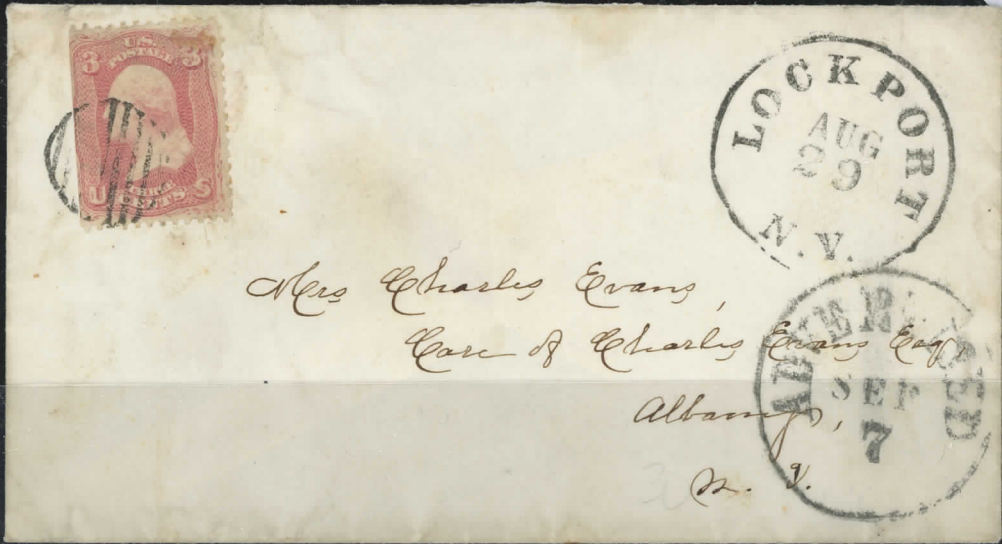 3 U.S. 3
POSTAGE
THREE
U CENTS S
LOCKPORT
AUG
29
N.Y.
Mrs Charles Evans,
Care of Charles Evans Esq
Albany,
N. Y.
ADVERTISED
SEP
7